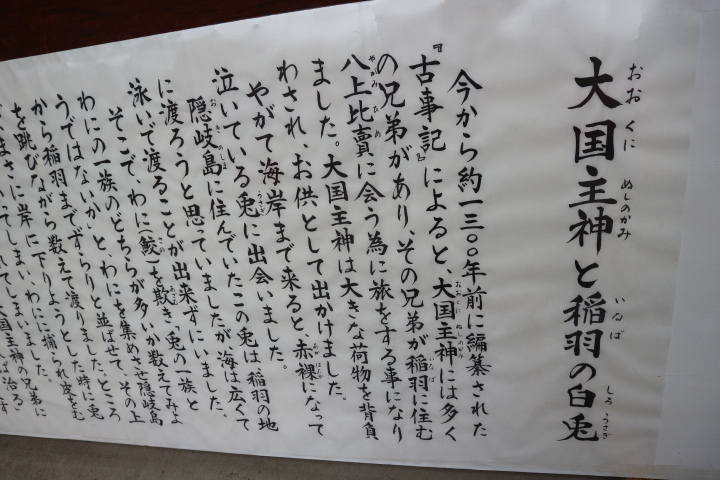 大国主神と稲羽の白兎
今から約一三〇〇年前に編纂された
『古事記』によると、大国主神には多く
の兄弟があり、その兄弟が稲羽に住む
八上比賣に会う為に旅をする事になり
ました。大国主神は大きな荷物を背負
わされ、お供として出かけました。
やがて海岸まで来ると、赤裸になって
泣いている兎に出会いました。
隠岐島に住んでいたこの兎は稲羽の地
に渡ろうと思っていましたが海は広くて
泳いで渡ることが出来ずにいました。
そこで、わに(鮫)を欺き「兎の一族と
わにの一族のどちらが多いか数えてみよ
うではないか」と、わにを集めさせ隠岐島
から稲羽までずらりと並ばせて、その上
を跳びながら数えて渡りました。ところ
がまさに岸に下りようとした時に兎
てしまい、わにに捕られ皮をむ
れてしまいました。
大国主神の兄弟に